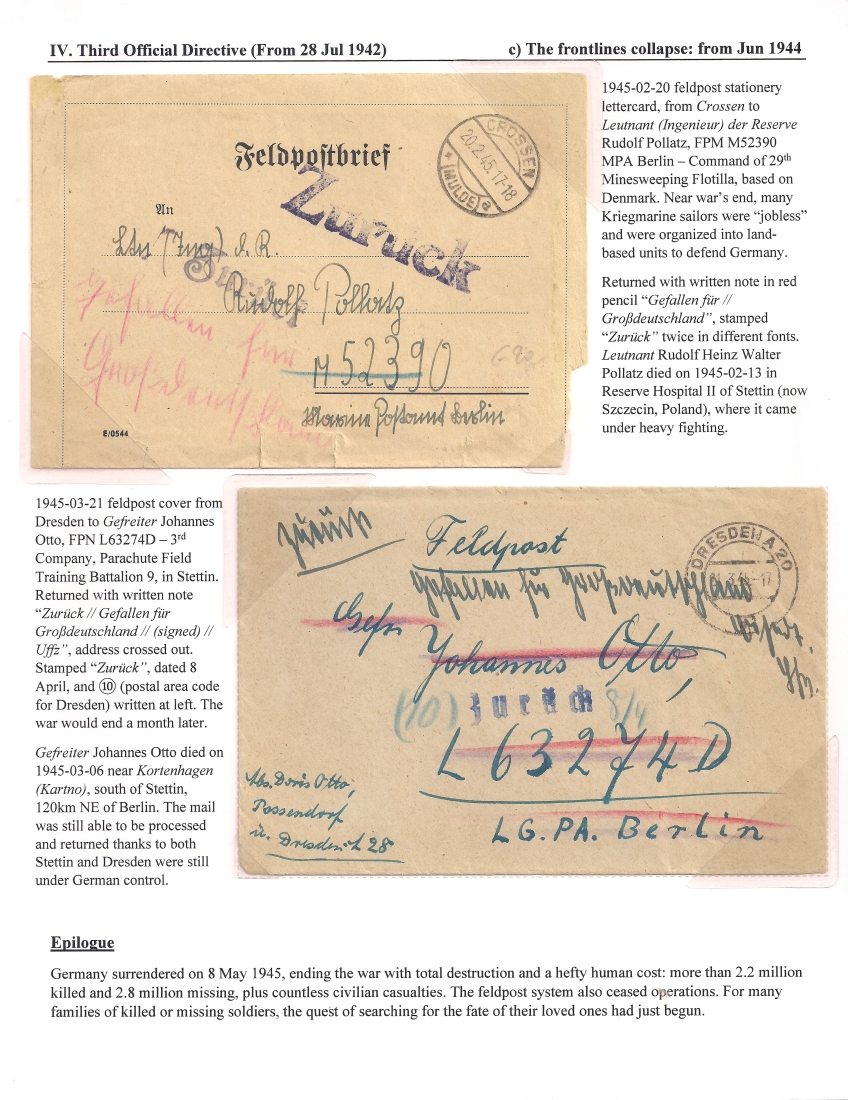 IV. Third Official Directive (From 28 Jul 1942)
c) The frontlines collapse: from Jun 1944
Feldpostbrief
An
CROSSEN
20.2.45.17-18
* (MULDE) a
Zurück
Zurück
Ltn (Ing) d. R.
Rudolf Pollatz
M 52390
Marine Postamt Berlin
Gefallen für
Großdeutschland
E/0544
1945-02-20 feldpost stationery
lettercard, from Crossen to
Leutnant (Ingenieur) der Reserve
Rudolf Pollatz, FPM M52390
MPA Berlin – Command of 29th
Minesweeping Flotilla, based on
Denmark. Near war's end, many
Kriegmarine sailors were “jobless”
and were organized into land-
based units to defend Germany.
Returned with written note in red
pencil “Gefallen für //
Großdeutschland”, stamped
“Zurück” twice in different fonts.
Leutnant Rudolf Heinz Walter
Pollatz died on 1945-02-13 in
Reserve Hospital II of Stettin (now
Szczecin, Poland), where it came
under heavy fighting.
1945-03-21 feldpost cover from
Dresden to Gefreiter Johannes
Otto, FPN L63274D – 3rd
Company, Parachute Field
Training Battalion 9, in Stettin.
Returned with written note
“Zurück // Gefallen für
Großdeutschland // (signed) //
Uffz”, address crossed out.
Stamped “Zurück”, dated 8
April, and ⑩ (postal area code
for Dresden) written at left. The
war would end a month later.
Gefreiter Johannes Otto died on
1945-03-06 near Kortenhagen
(Kartno), south of Stettin,
120km NE of Berlin. The mail
was still able to be processed
and returned thanks to both
Stettin and Dresden were still
under German control.
zurück
Feldpost
DRESDEN A 20
Gefallen für Großdeutschland
Uffz.
Gefr.
Johannes Otto,
(10) Zurück 8/4
L 63274D
LG.PA. Berlin
Abs. Doris Otto,
Possendorf
ü. Dresden-A 28
Epilogue
Germany surrendered on 8 May 1945, ending the war with total destruction and a hefty human cost: more than 2.2 million
killed and 2.8 million missing, plus countless civilian casualties. The feldpost system also ceased operations. For many
families of killed or missing soldiers, the quest of searching for the fate of their loved ones had just begun.